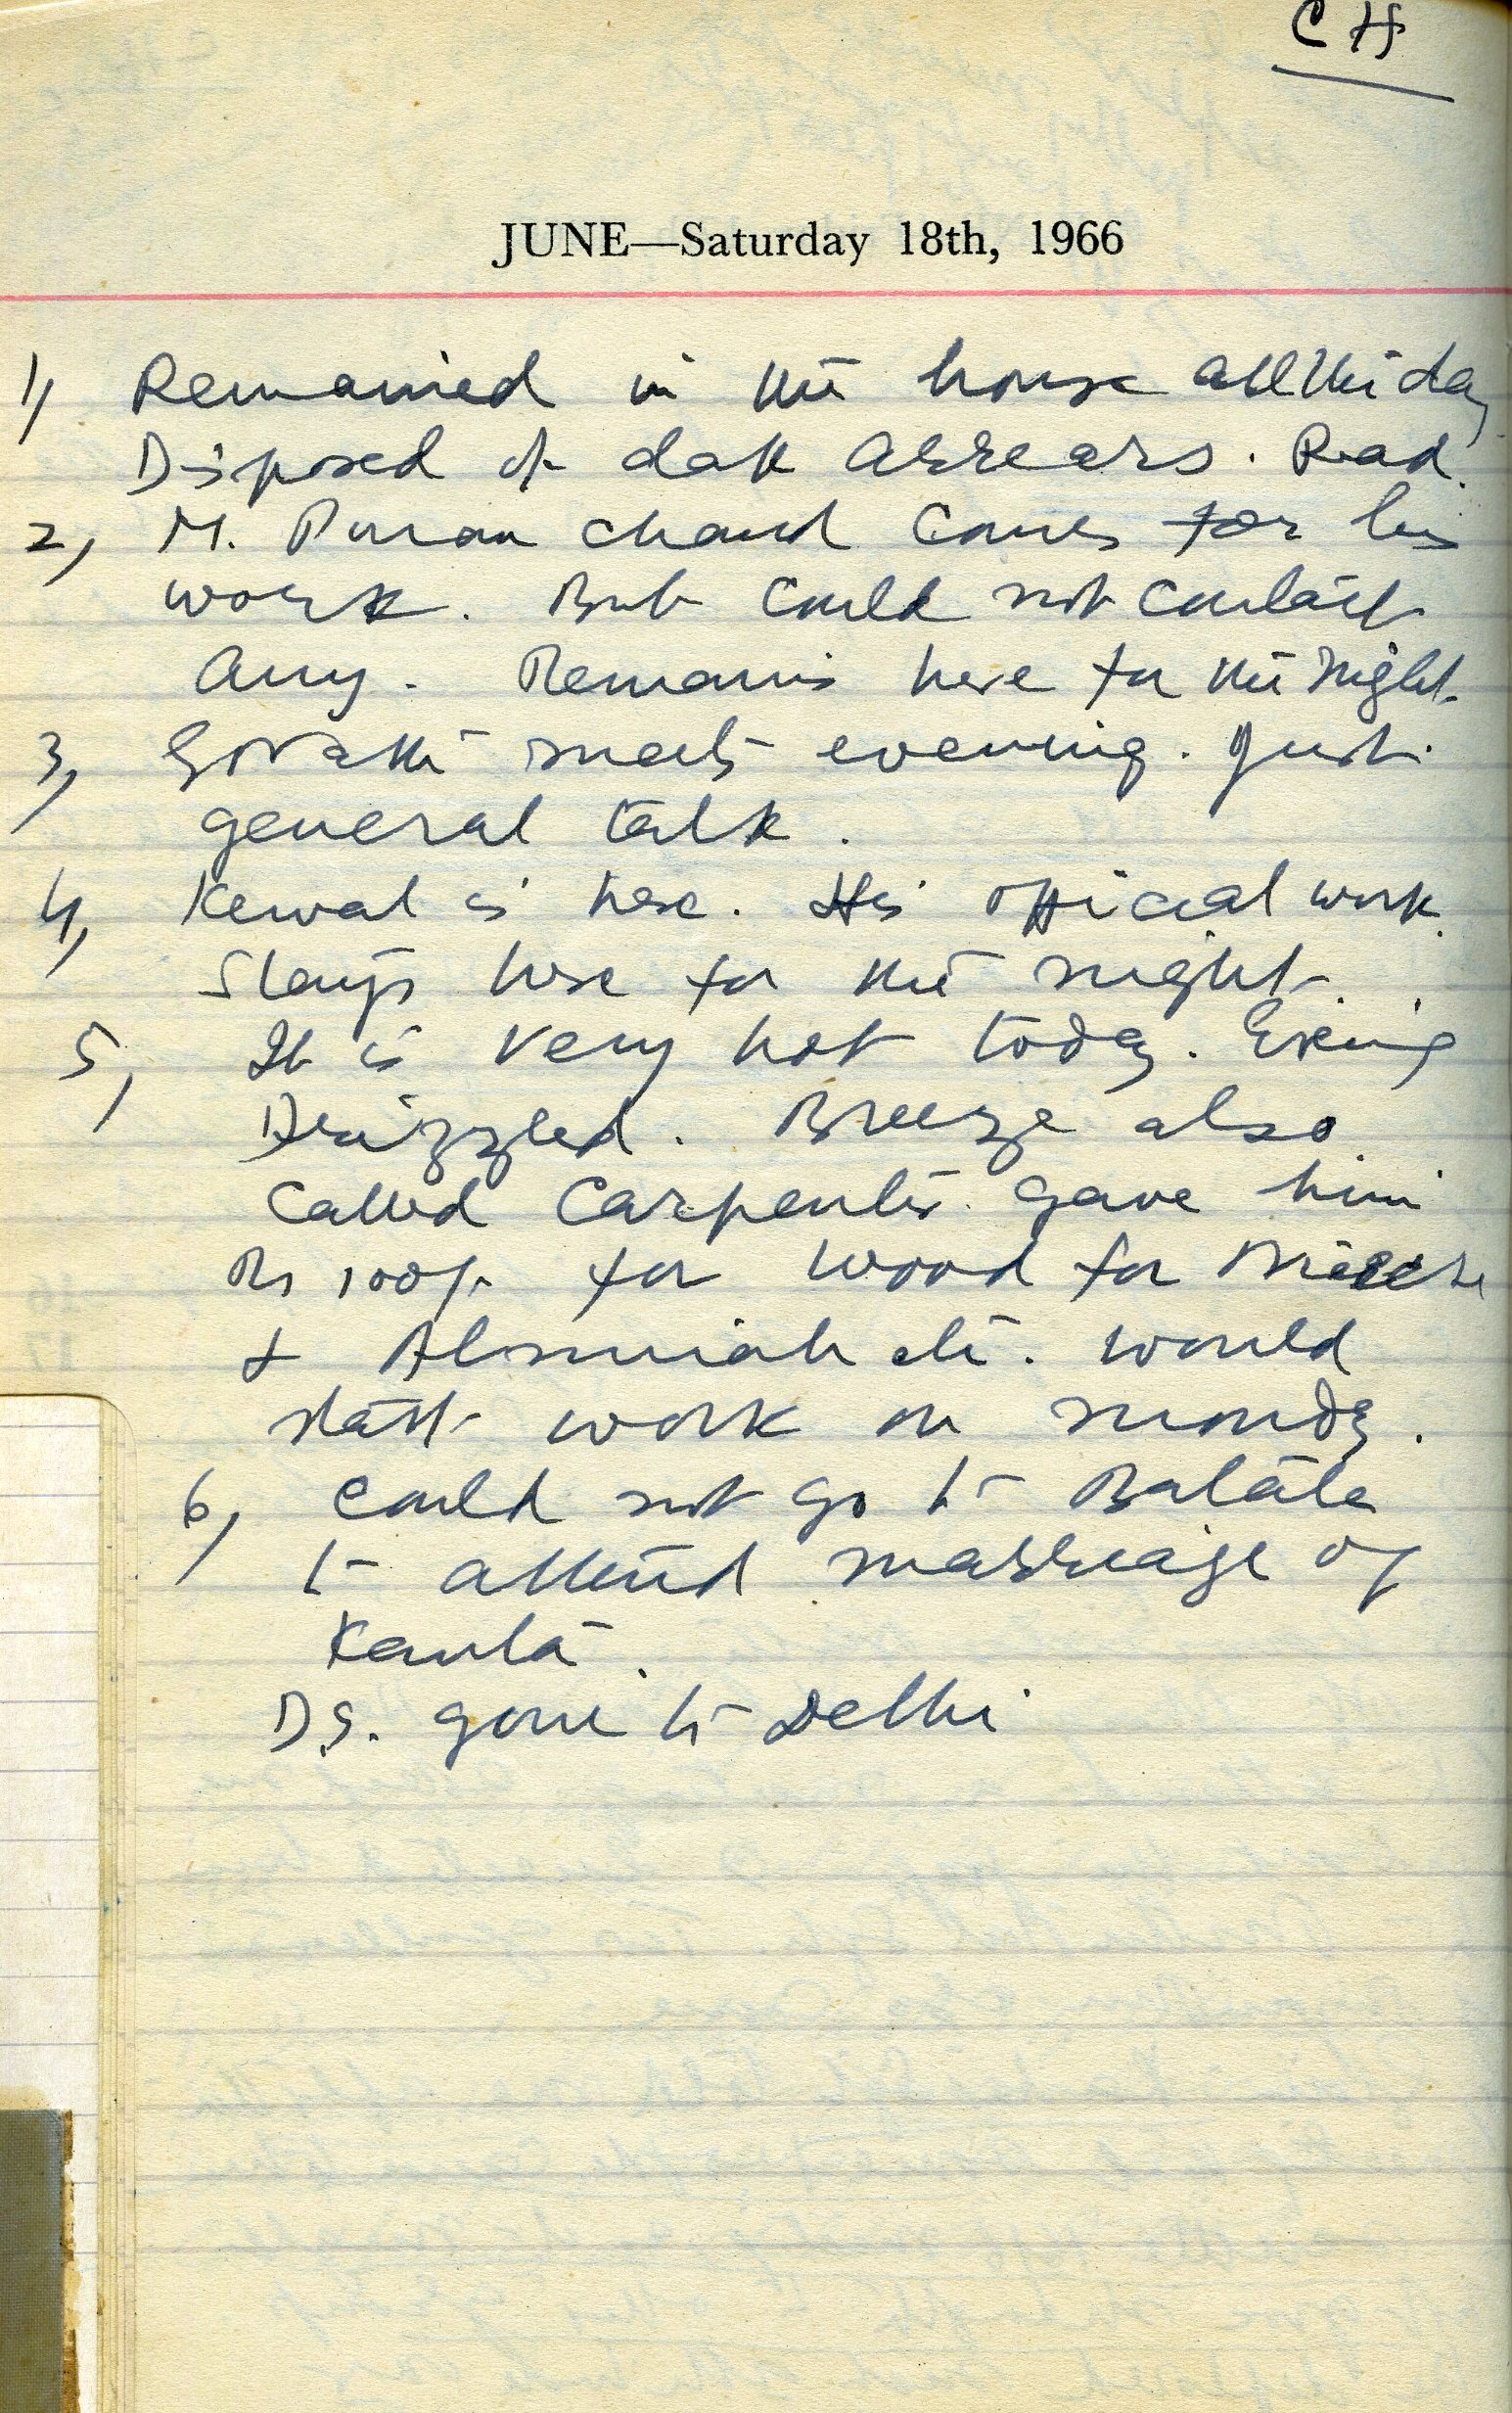 CH
JUNE—Saturday 18th, 1966
1, Remained in the house all the day
Disposed of dak arrears. Read.
2, M. Puran Chand comes for his
work. But could not contact
any. Remains here for the night.
3, meets evening. Just
general talk.
4, Kewal is here. His official work.
Stays here for the night.
5, It is very hot today. Evening
Drizzled. Breeze also
Called Carpenter. Gave him
Rs 100/- for wood for
& Almirah etc. would
start work on Monday.
6, Could not go to Batala
to attend marriage of
Kanta.
D.S. gone to Delhi